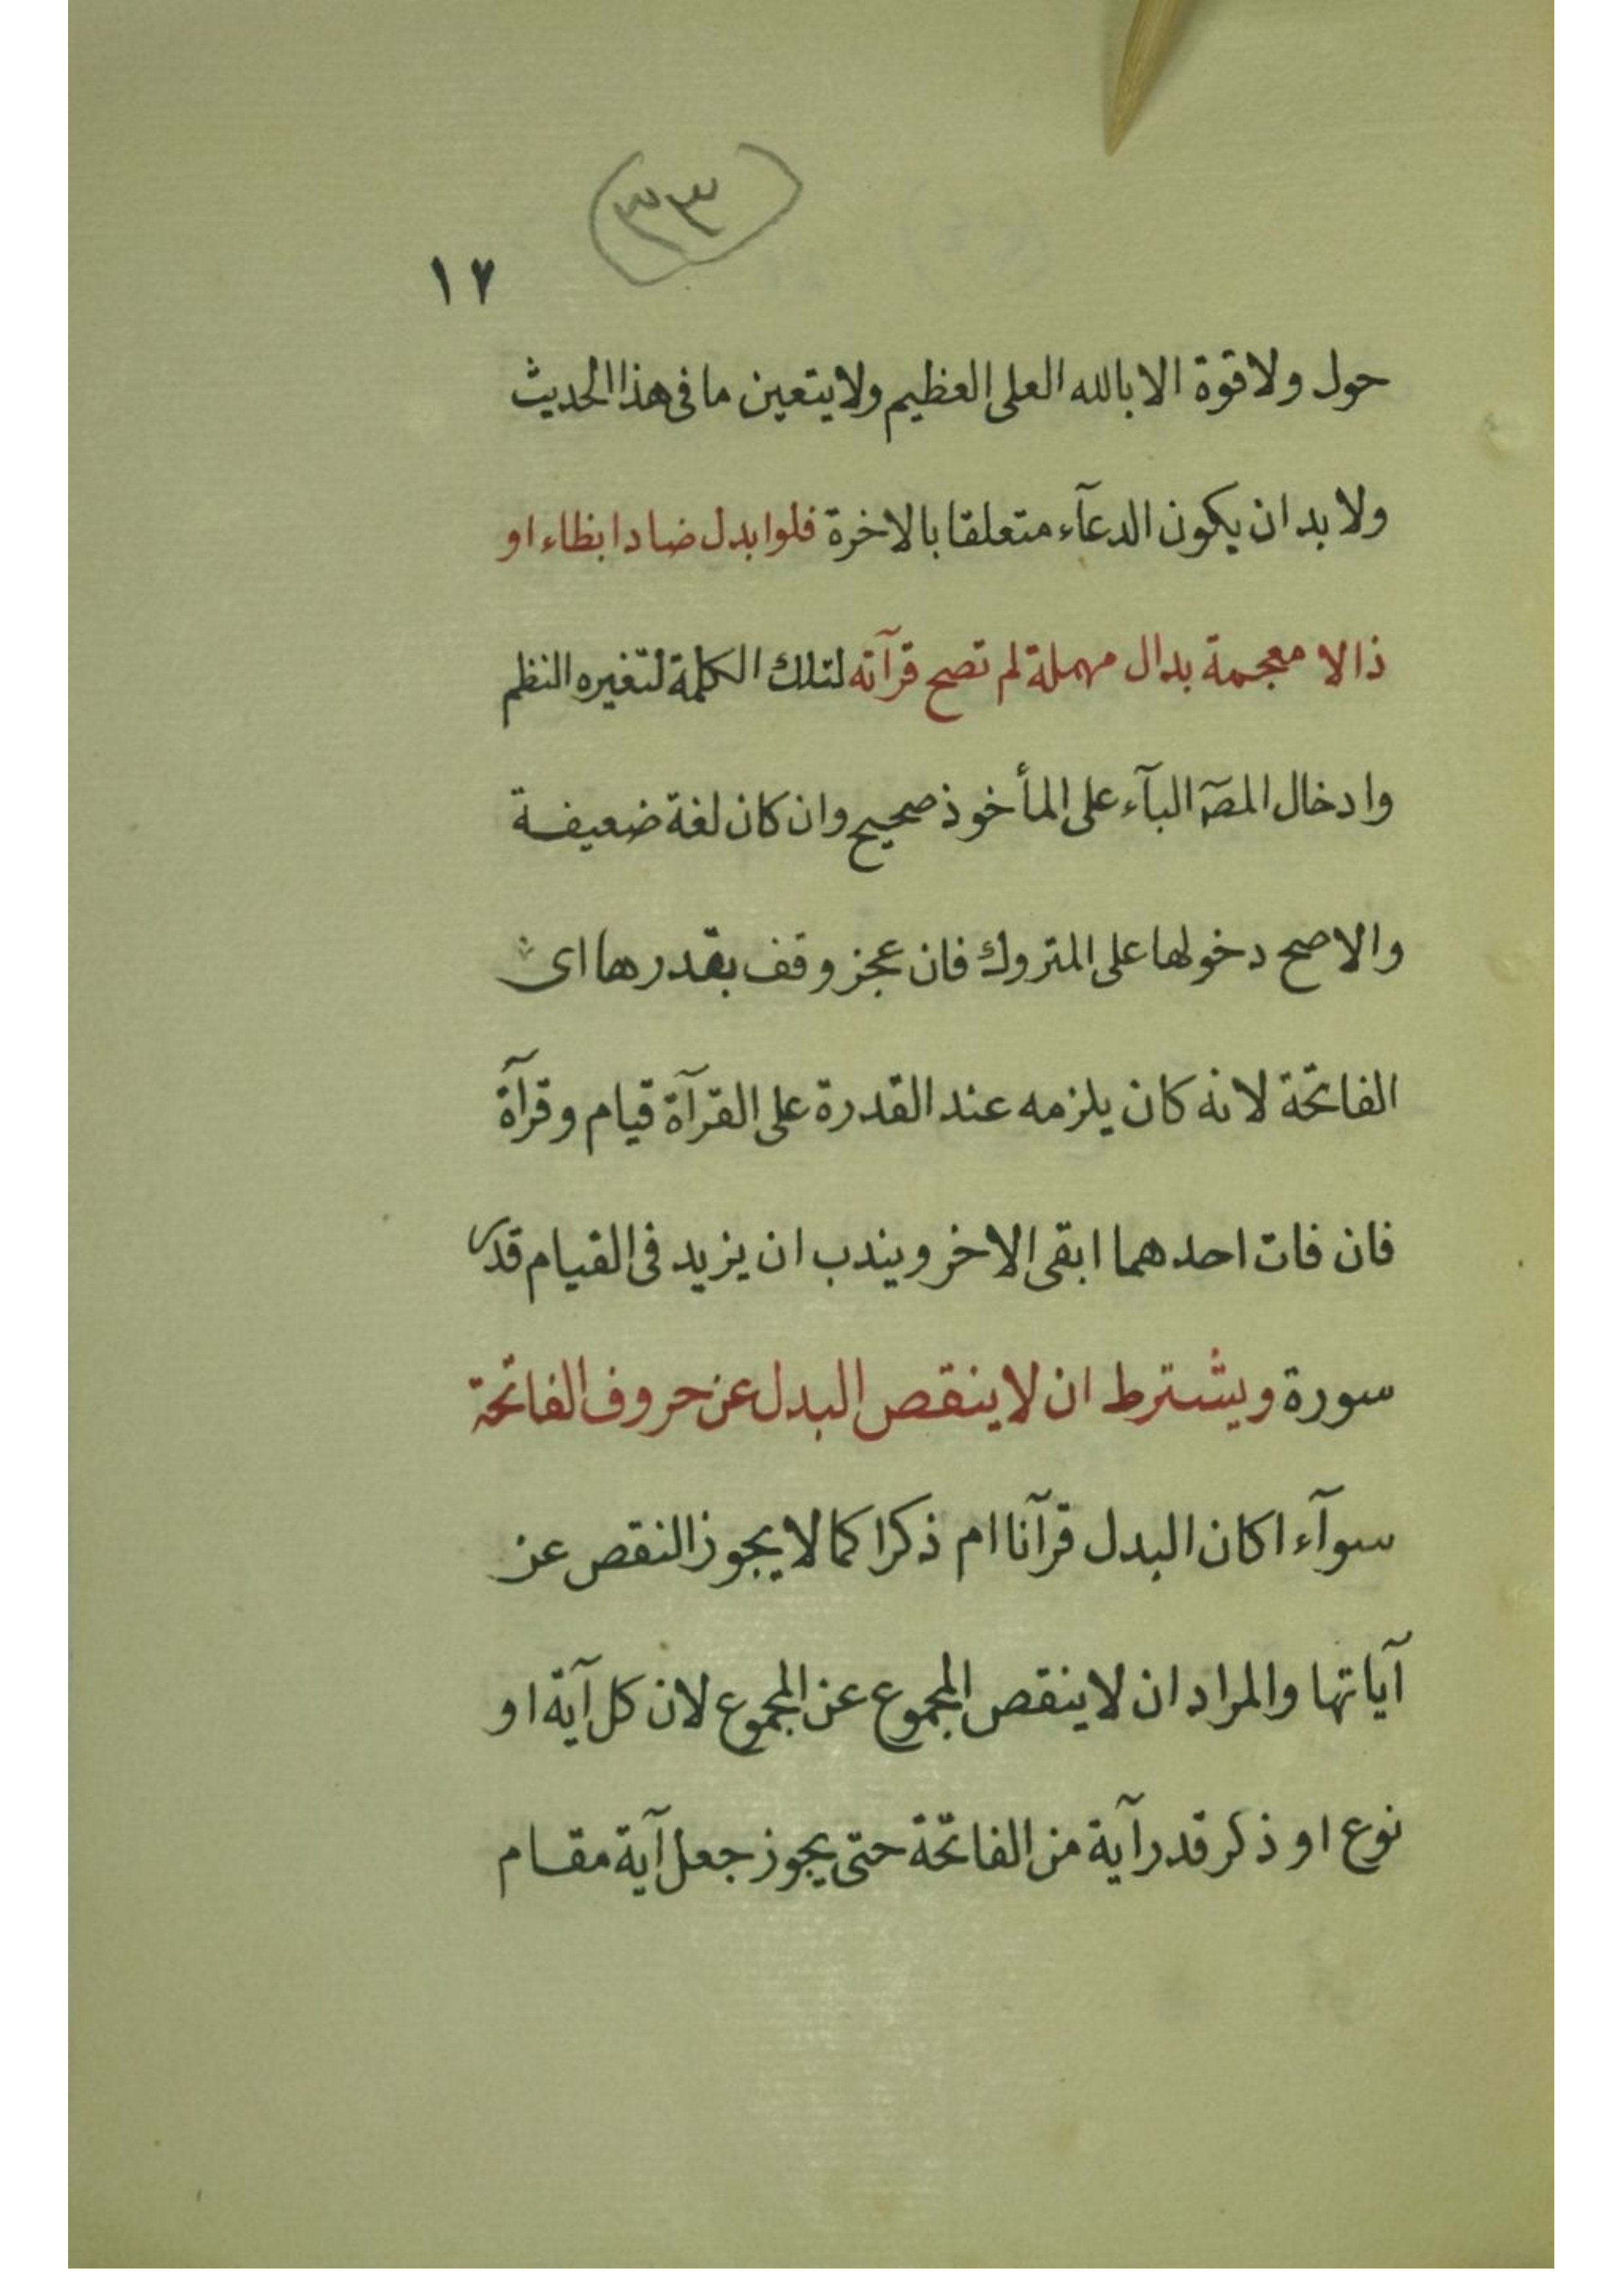 (٣٣)
١٧
حول ولا قوة الا بالله العلى العظيم ولا يتعين ما فى هذا الحديث
ولا بد ان يكون الدعآء متعلقا بالاخرة فلو ابدل ضادا بظاء او
ذالا معجمة بدال مهملة لم تصح قرآته لتلك الكلمة لتغيره النظم
وادخال المصٓ البآء على المأخوذ صحيح وان كان لغة ضعيفة
والاصح دخولها على المتروك فان عجز وقف بقدرها اى
الفاتحة لانه كان يلزمه عند القدرة على القرآة قيام وقرآة
فان فات احدهما ابقى الاخر ويندب ان يزيد فى القيام قدر
سورة ويشترط ان لا ينقص البدل عن حروف الفاتحة
سوآء اكان البدل قرآنا ام ذكرا كما لا يجوز النقص عن
آياتها والمراد ان لا ينقص المجموع عن المجموع لان كل آية او
نوع او ذكر قدر آية من الفاتحة حتى يجوز جعل آية مقام